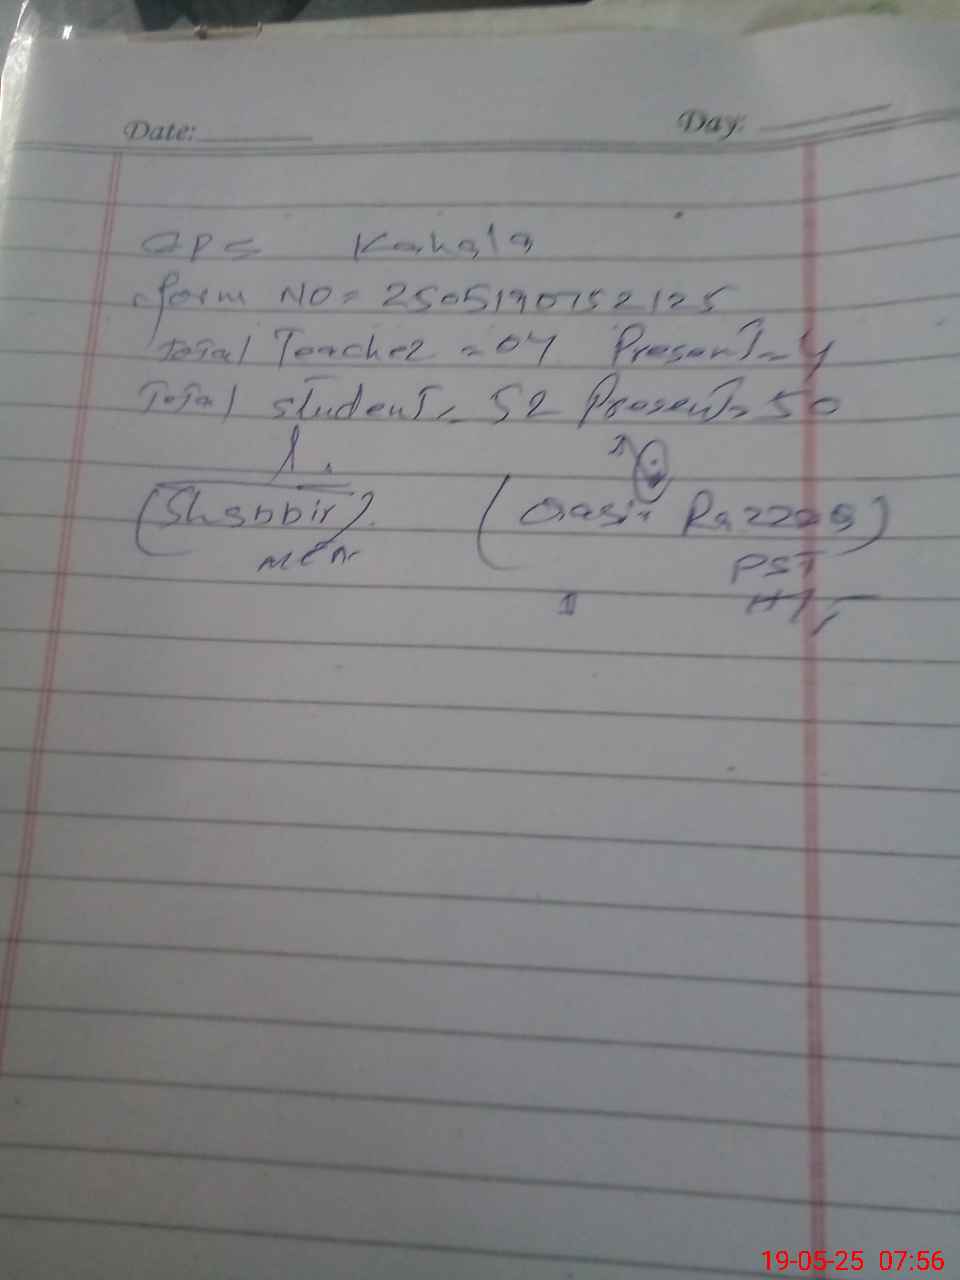 Date: Day:
GPS Kahala
form NO = 250519075 2125
Total Teacher = 04 Present = 4
Total student = 52 Present = 50
(Shabbir) (Qasir Razzaq)
PST
19-05-25 07:56